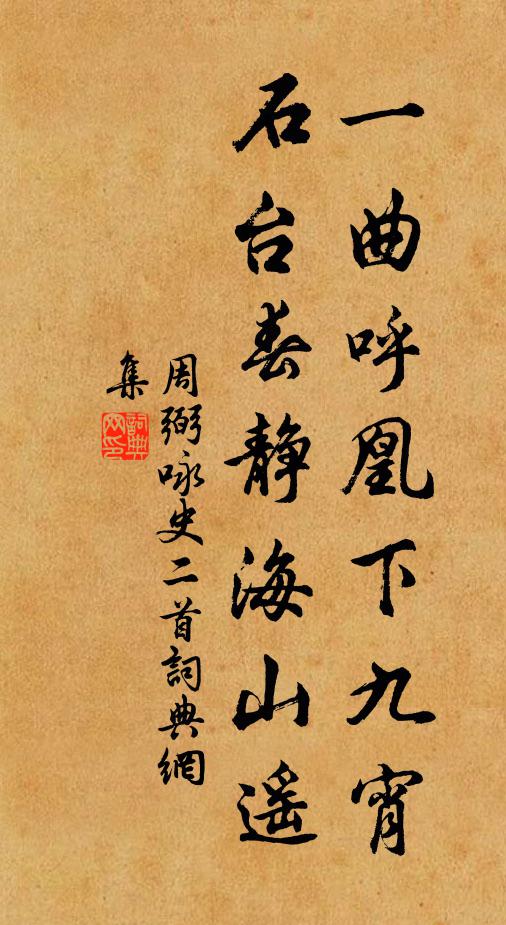 一曲呼凰下九宵
石台春静海山遥
周弼咏史二首詞典網
集
詞典网印